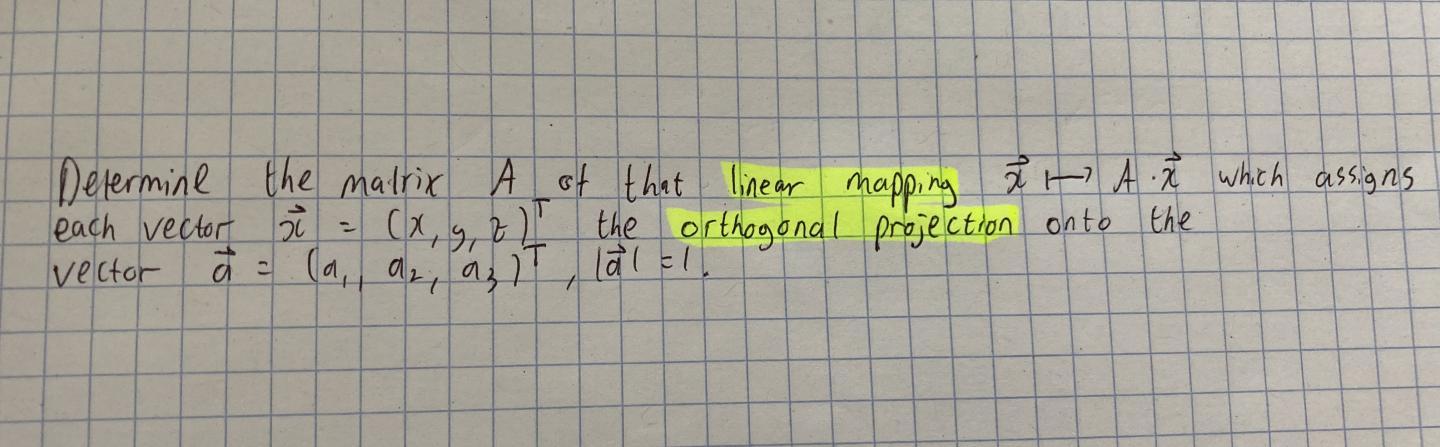 Determine the matrix A of that linear mapping x⃗ ↦ A · x⃗ which assigns
each vector x⃗ = (x, y, z)ᵀ the orthogonal projection onto the
vector a⃗ = (a₁, a₂, a₃)ᵀ, |a⃗| = 1.